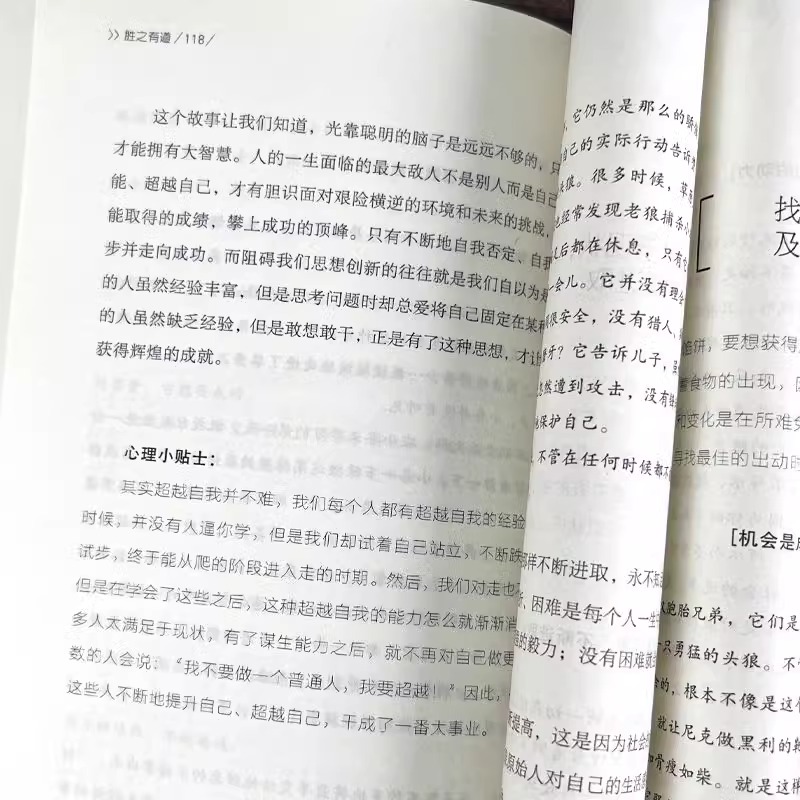 >> 胜之有道 /118/
这个故事让我们知道，光靠聪明的脑子是远远不够的，只
才能拥有大智慧。人的一生面临的最大敌人不是别人而是自己
能、超越自己，才有胆识面对艰险横逆的环境和未来的挑战，
能取得的成绩，攀上成功的顶峰。只有不断地自我否定、自我
步并走向成功。而阻碍我们思想创新的往往就是我们自以为是
的人虽然经验丰富，但是思考问题时却总爱将自己固定在某种
的人虽然缺乏经验，但是敢想敢干，正是有了这种思想，才让
获得辉煌的成就。
心理小贴士：
其实超越自我并不难，我们每个人都有超越自我的经验
时候，并没有人逼你学，但是我们却试着自己站立，不断跌
试步，终于能从爬的阶段进入走的时期。然后，我们对走也
但是在学会了这些之后，这种超越自我的能力怎么就渐渐消
多人太满足于现状，有了谋生能力之后，就不再对自己做更
数的人会说：“我不要做一个普通人，我要超越！”因此，
这些人不断地提升自己、超越自己，干成了一番大事业。
，它仍然是那么的骄
自己的实际行动告诉
头狼。很多时候，草
经常发现老狼捕杀小
后都在休息，只有它
一会儿。它并没有理会
很安全，没有猎人、
磨牙？它告诉儿子，
忽然遭到攻击，没有
保护自己。
，不管在任何时候都不
那样不断进取，永不
、困难是每个人一生
的毅力；没有困难
提高，这是因为社会
原始人对自己的生活
找
及
馅饼，要想获得
食物的出现，
和变化是在所难免
寻找最佳的出动时
[机会是
双胞胎兄弟，它们是
一只勇猛的头狼。不
的，根本不像是这
就让尼克做黑利的
骨瘦如柴。就是这